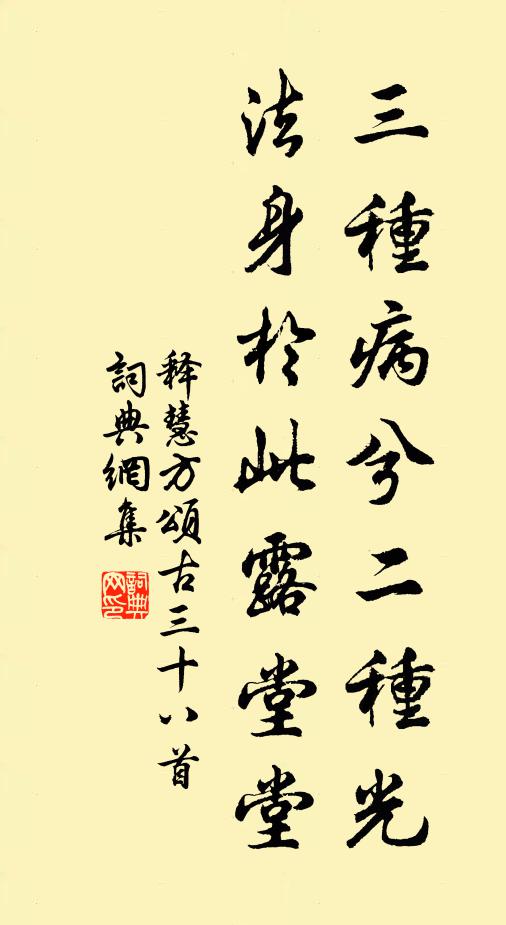 三種病兮二種光
法身於此露堂堂
释慧方頌古三十八首
詞典網集
詞典網印